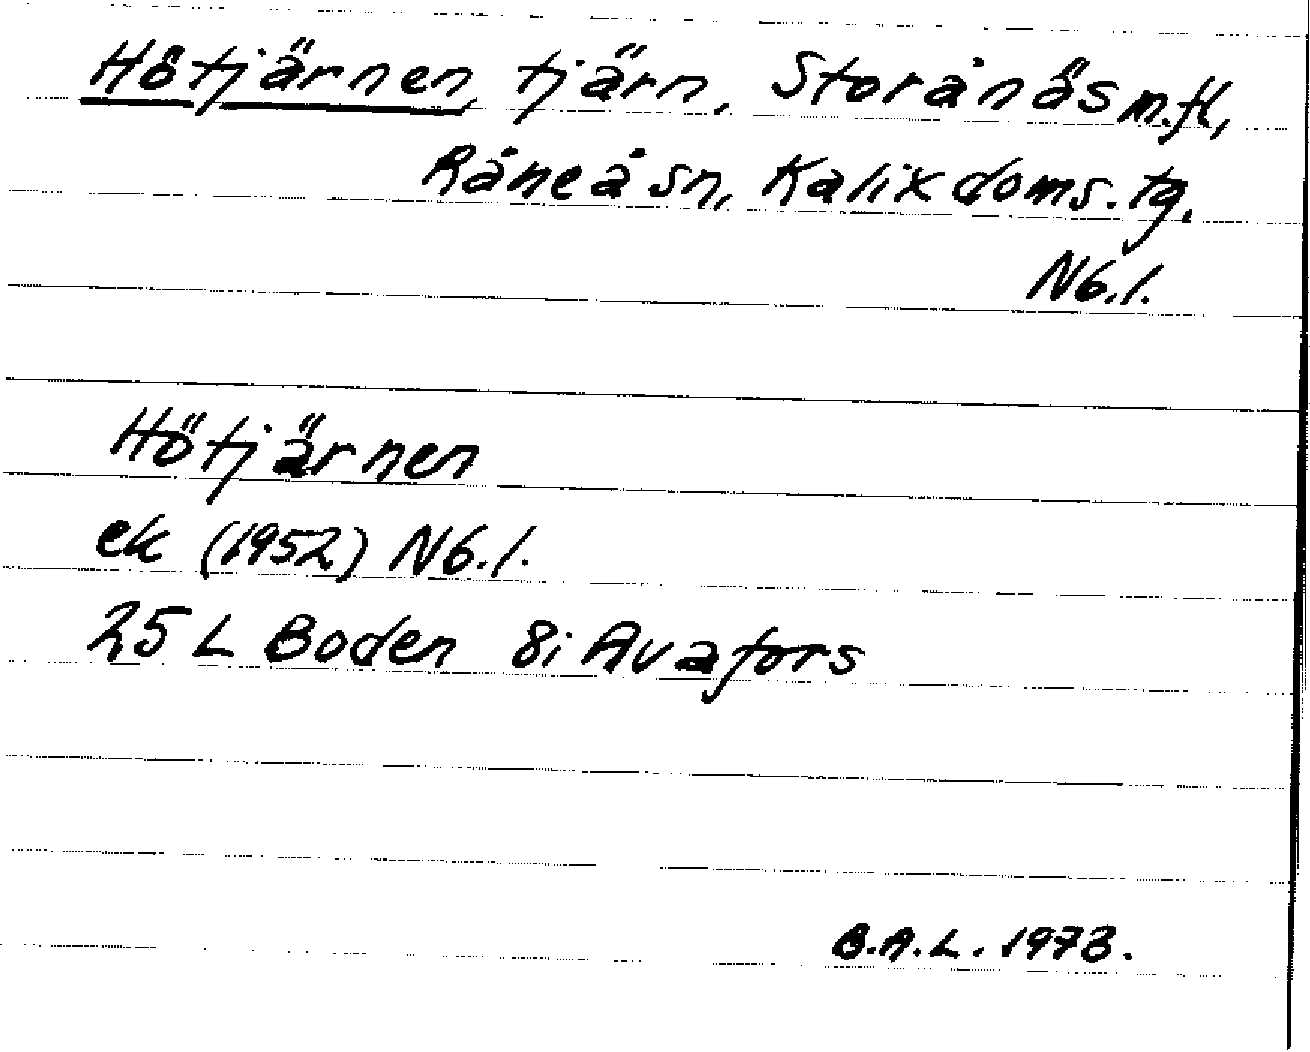 Hötjärnen, tjärn, Storånäs m.fl,
Råneå sn, Kalix doms. tg.
Nb.l.
Hötjärnen
ek (1952) Nb.l.
25 L Boden 8i Avafors
B.A.L. 1973.